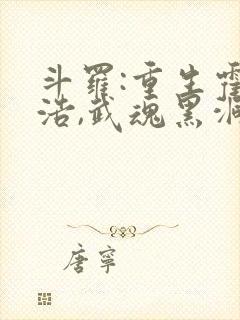 斗羅:重生霍
浩,武魂黑洞
唐寧